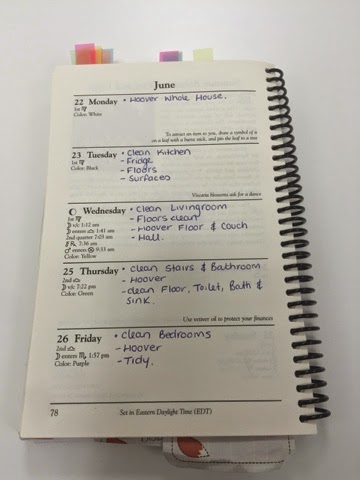 June
22 Monday • Hoover Whole House.
1st ♍
Color: White
To attract an item to you, draw a symbol of it
on a leaf with a burnt stick, and pin the leaf to a tree
23 Tuesday • Clean Kitchen
1st ♍
- Fridge
Color: Black
- Floors
- Surfaces
Viscaria blossoms ask for a dance
Wednesday • Clean Livingroom
1st ♍
- Floors clean
☽ v/c 1:12 am
☽ enters ♎ 1:41 am
- Hoover Floor & Couch
2nd quarter 7:03 am
- Hall.
☿ ℞ 7:36 am
♂ enters ♋ 9:33 am
Color: Yellow
25 Thursday • clean Stairs & Bathroom
2nd ♎
- Hoover
☽ v/c 7:22 pm
- clean Floor, Toilet, Bath &
Color: Green
Sink.
Use vetiver oil to protect your finances
26 Friday • Clean Bedrooms
2nd ♎
- Hoover
☽ enters ♏ 1:57 pm
- Tidy.
Color: Purple
78 Set in Eastern Daylight Time (EDT)